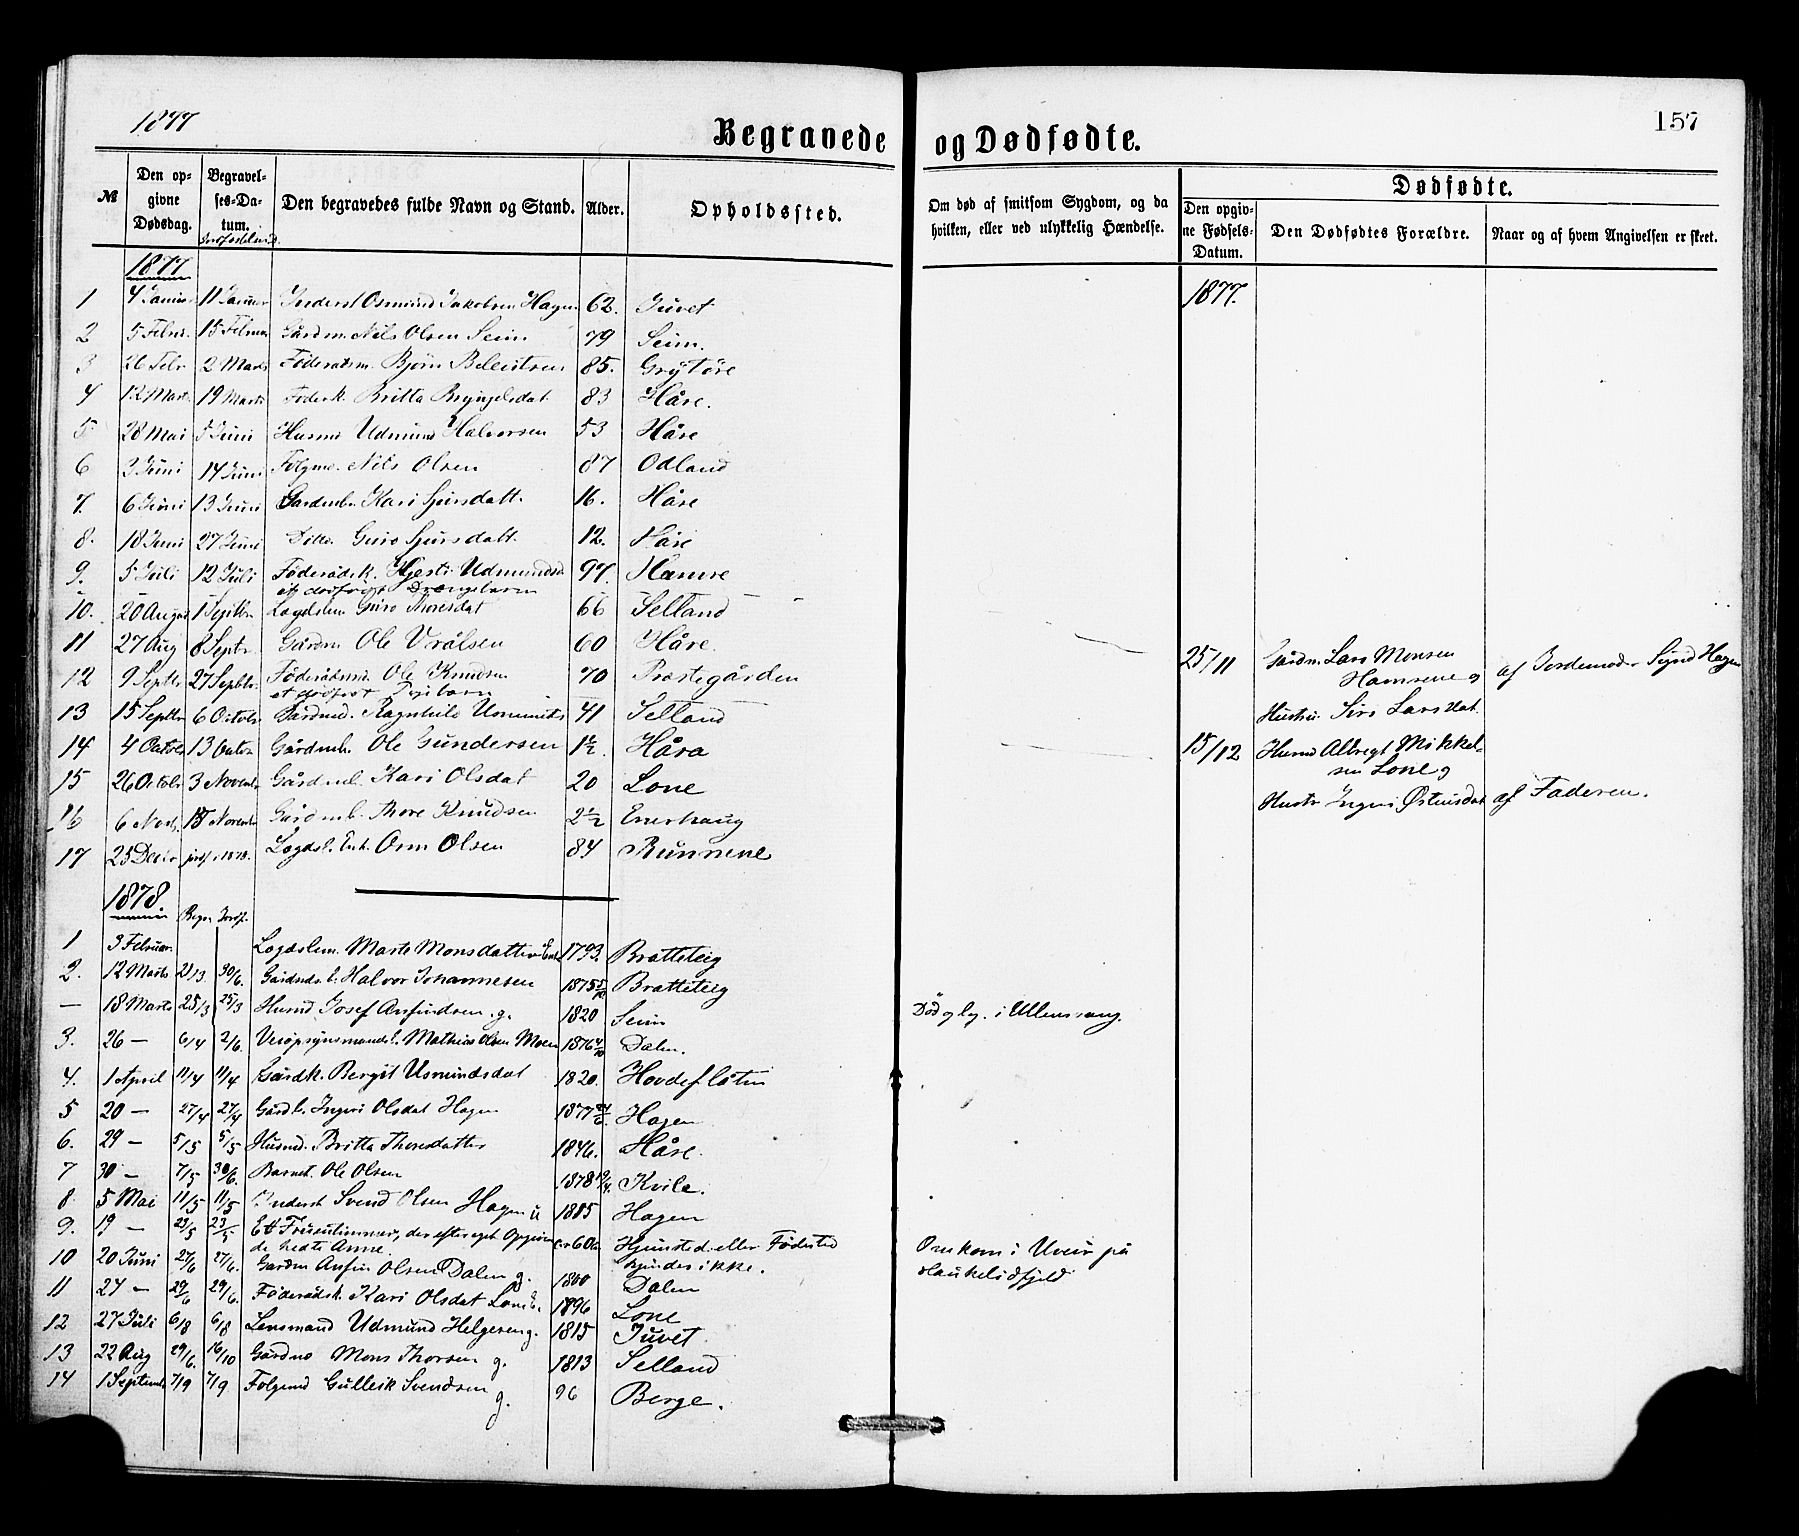 1877
Begravede og Dødfødte.
157
№
Den opgivne Dødsdag.
Begravelses-Datum.
Den begravedes fulde Navn og Stand.
Alder.
Opholdssted.
Om død af smitsom Sygdom, og da hvilken, eller ved ulykkelig Hændelse.
Dødfødte.
Den opgivne Fødsels-Datum.
Den Dødfødtes Forældre.
Naar og af hvem Angivelsen er skeet.
1877
1877.
1 4 Januar 11 Januar Inderst Osmund Jakobsen Hagen 62. Juvet
2 5 Febr. 15 Februar Gårdm. Nils Olsen Seim 79 Seim.
3 26 Febr 2 Marts Föderådsm. Björn 85. Grytöre
4 12 Mart. 19 Marts Föderk. Britta Bryngelsdat. 83 Håre.
5 28 Mai 5 Juni Husmd Udmund Halvorsen 53 Håre
6 3 Juni 14 Juni Folgmd. Nils Olsen 87 Odland
7. 6 Juni 13 Juni Gardmb. Kari Sjursdatt. 16. Håre
8. 18 Juni 27 Juni Ditto Guro Sjursdatt. 12. Håre
9. 5 Juli 12 Juli Föderådsk. Udmundsd 97. Hamre
- - et dødfødt Drengebarn - -
10. 20 August 1 Septbr. Lægdslem Guro Thoresdat 66 Selland
11 27 Aug 8 Septr. Gårdm Ole Vrålsen 60 Håre.
12 9 Septbr 27 Septbr. Föderådsmd. Ole Knudsen 70 Præstegården
25/11 Gårdm. Lars Monsen Hamrene og
af Jordemoder Hagen
et dødfødt Pigebarn
13 15 Septbr 6 Octobr. Ragnhild 41 Selland
Hustru Siri Larsdat.
14 4 Octobr 13 Octbr. Gårdmb. Ole Gundersen 1½ Håra
15/12 Husmd Albregt Mikkelsen Lone og
15 26 Octobr 3 Novembr Gårdmb. Kari Olsdat 20 Lone
Hustr Ingeri Østensdat af Faderen.
16 6 Novbr. 18 Novembr Gårdmb. Thore Knudsen 2½ Enerhaug
17 25 Decbr jordf. 1878. Lægdsl. Enk. Orm Olsen 84 Runnene
1878.
Begr Jordf.
1 3 Februar. Lægdslem. Marte Monsdatter Enke 1793. Bratteteig
2. 12 Marts 21/3 30/6. Halvor Johannesen 1875 Bratteteig
— 18 Marts 25/3 25/3 Husmd Josef Anfindsen. g. 1820 Seim
Död og beg. i Ullensvang.
3. 26 — 6/4 2/6. Veiopsynsmandsb. Mathias Olsen Moen 1876 Dalen.
4. 1 April 11/4 11/4 Gårdk. Bergit Usmundsdat 1820. Hovdeflåten
5 20 — 27/4 27/4 Gårdb. Ingeri Olsdat Hagen 1877 Hagen
6. 29 — 5/5 5/5 Husmd. Britta Thoresdatter 1846. Håre.
7 30 — 7/5 30/6. Barnet Ole Olsen 1878 Kvile.
8. 5 Mai 11/5 11/5 Inderst Svend Olsen Hagen u 1885 Hagen
9. 19 — 23/5 23/5 Et Fruentimmer, der efter eget Opgivende hedte Anne. ca 60 Hjemsted eller Födested kjendes ikke.
Omkom i Uveir på Haukelidfjeld
10 20 Juni 27/6 27/6. Gardm Anfin Olsen Dalen g. 1800 Dalen
11 24 — 29/6 29/6. Föderådsk. Kari Olsdat Lone E. 1896 Lone
12 27 Juli 6/8 6/8 Lensmand Udmund Helgesen g. 1815 Juvet.
13 22 Aug 29/6. 16/10 Gårdmd Mons Thorsen g. 1813 Selland
14 1 Septemb. 7/9 7/9 Folgemd Gulleik Svendsen g. 96 Berge.